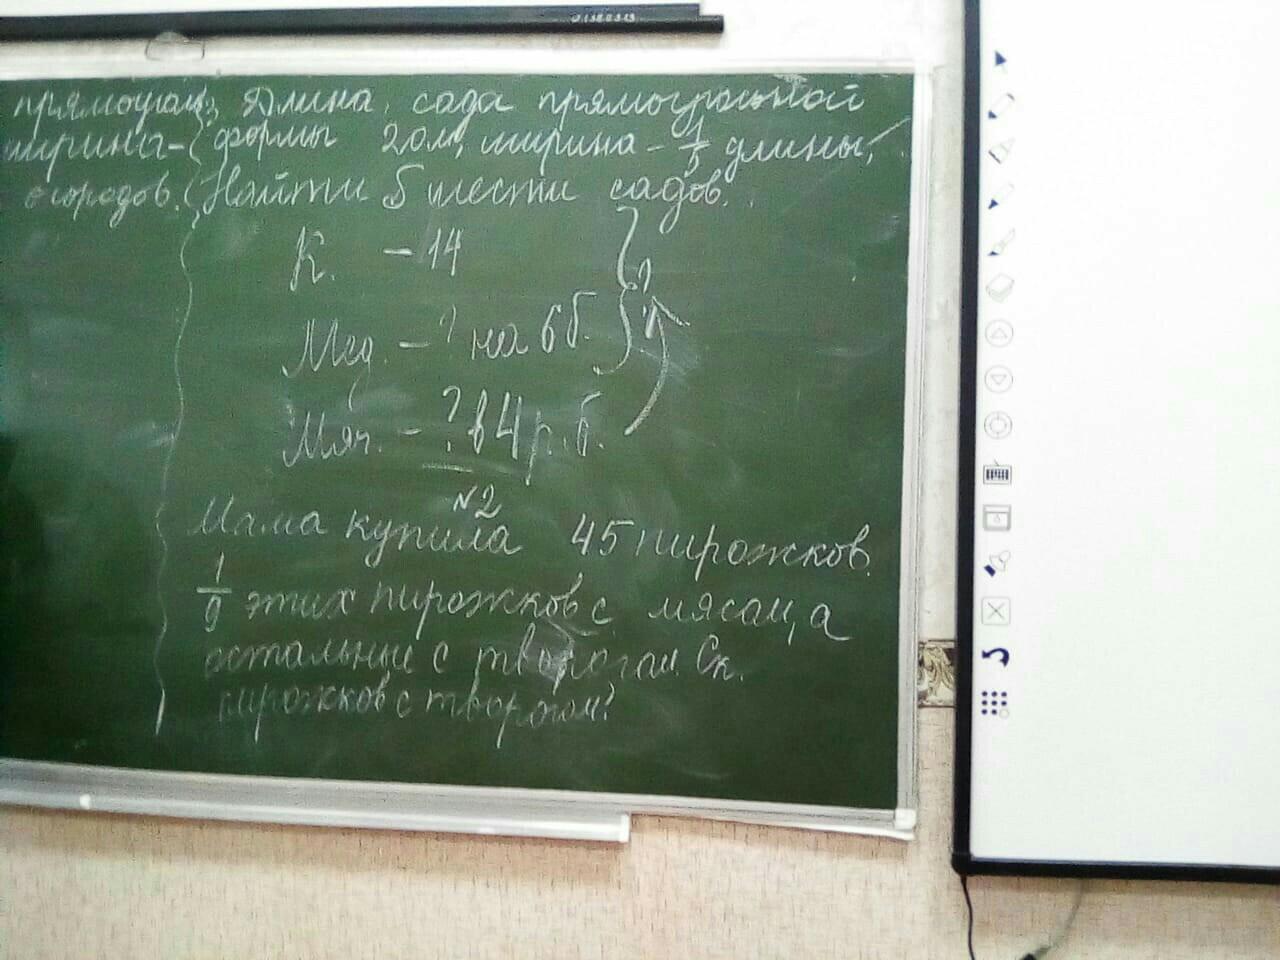 прямоуг
ширина-
огородов.
Длина сада прямоугольной
формы 20м, ширина - 1/5 длины.
Найти S шести садов.
К. - 14
?
Мед. - ? на 6 б.
Мяч. - ? в 4 р. б.
№2
Мама купила 45 пирожков.
1/9 этих пирожков с мясом, а
остальные с творогом. Ск.
пирожков с творогом?